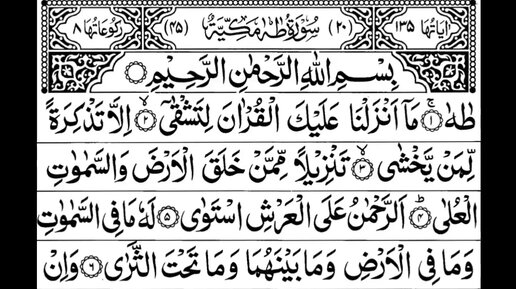 اٰيَاتُهَا ١٣٥ (٢٠) سُوْرَةُ طٰهٰ مَكِّيَّةٌ (٤٥) رُكُوْعَاتُهَا ٨
بِسْمِ اللّٰهِ الرَّحْمٰنِ الرَّحِيْمِ ۝
طٰهٰ ۚ‏﴿١﴾ مَاۤ اَنْزَلْنَا عَلَيْكَ الْقُرْاٰنَ لِتَشْقٰٓى ۙ‏﴿٢﴾ اِلَّا تَذْكِرَةً
لِّمَنْ يَّخْشٰى ۙ‏﴿٣﴾ تَنْزِيْلًا مِّمَّنْ خَلَقَ الْاَرْضَ وَالسَّمٰوٰتِ
الْعُلٰى ؕ‏﴿٤﴾ اَلرَّحْمٰنُ عَلَى الْعَرْشِ اسْتَوٰى ﴿٥﴾ لَهٗ مَا فِى السَّمٰوٰتِ
وَمَا فِى الْاَرْضِ وَمَا بَيْنَهُمَا وَمَا تَحْتَ الثَّرٰى ﴿٦﴾ وَاِنْ